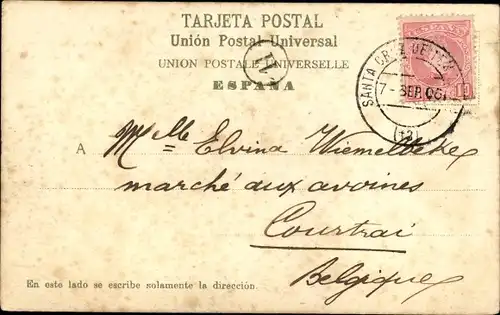 TARJETA POSTAL
Unión Postal Universal
UNION POSTALE UNIVERSELLE
ESPAÑA
11
SANTA CRUZ DE
(12)
A Mlle Elvina Wiemelbeke
marché aux avoines
Courtrai
Belgique
En este lado se escribe solamente la dirección.